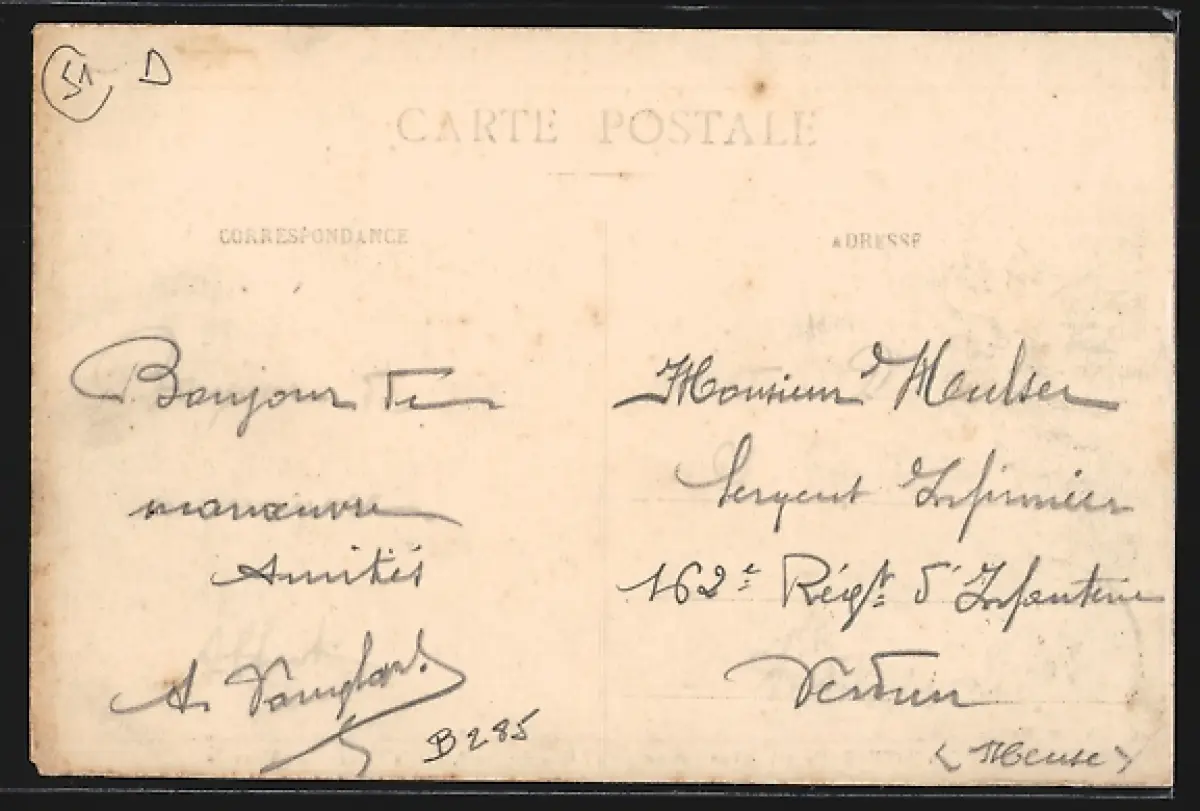 51 D
CARTE POSTALE
CORRESPONDANCE
Bonjour de
manœuvre
Amitiés
A.
B285
ADRESSE
Monsieur
Sergent Infirmier
162e Régt d'Infanterie
Verdun
(Meuse)